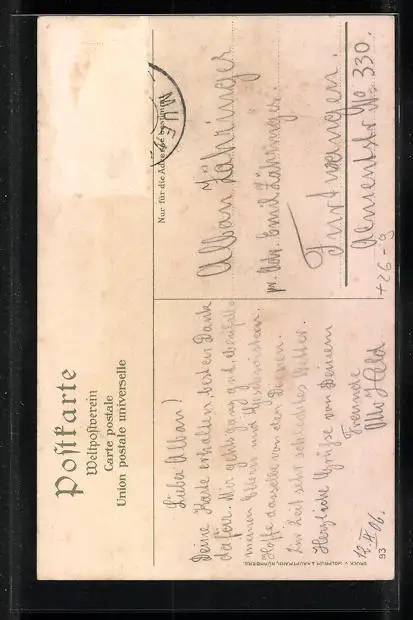 Postkarte
Weltpostverein
Carte postale
Union postale universelle
Nur für die Adresse bestimmt
MUE
Alban Zähringer
pr. Adr. Emil Zähringer.
Furtwangen.
Almentstr. No 330.
+26-9
Lieber Alban!
Deine Karte erhalten, besten Dank
dafür. Mir gehts ganz gut, ebenfalls
meinen Eltern und Geschwistern.
Hoffe dasselbe von den Deinen.
Zur Zeit sehr schlechtes Wetter.
Herzliche Grüße von Deinem
Freunde
Held
12. 06.
93
DRUCK V. WOLFRUM & HAUPTMANN, NÜRNBERG.